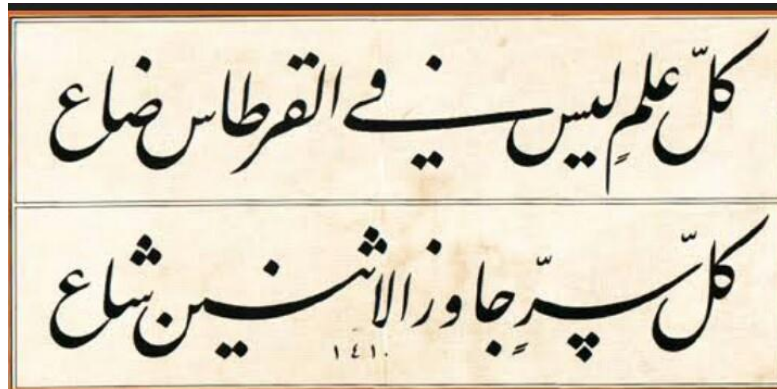 كلّ علمٍ ليس في القرطاس ضاع
كلّ سرٍّ جاوز الاثنين شاع
١٤١٠